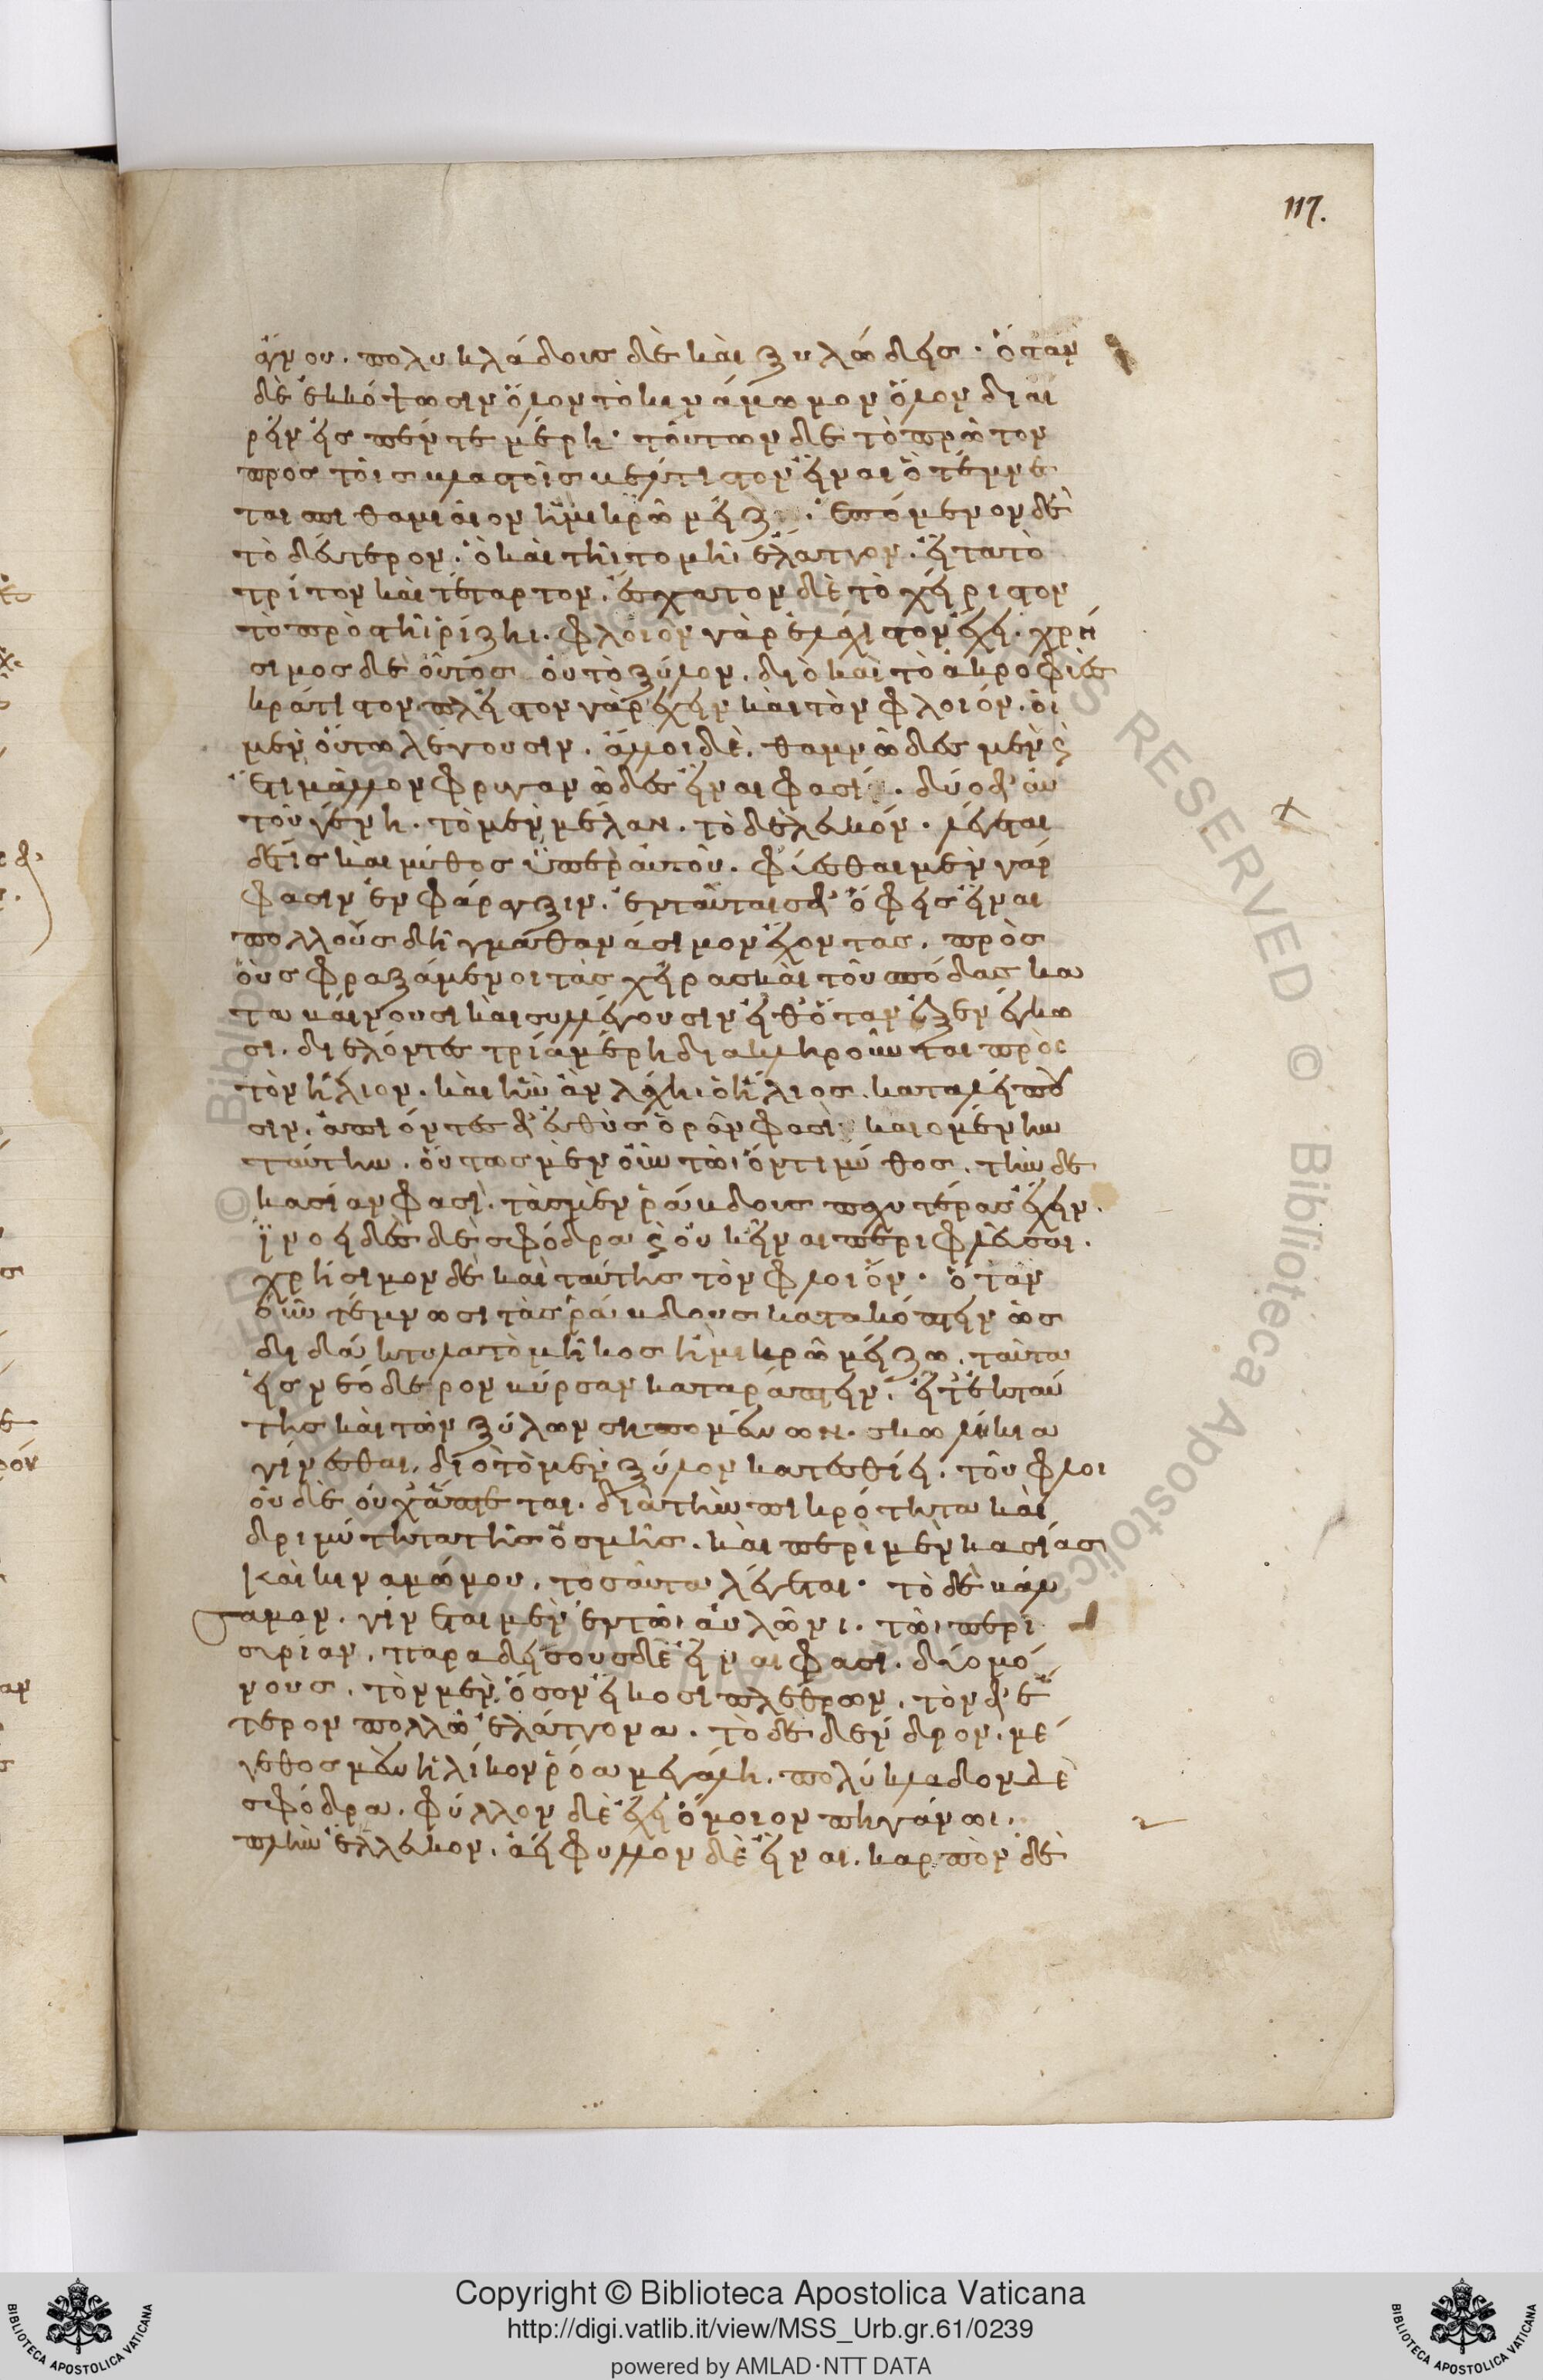 117.
ἄγνου. πολυκλάδους δὲ καὶ ξυλώδεις. ὅταν
δὲ ἐκκόψωσιν ὅλον τὸ κινάμωμον ὅλον διαι
ρεῖν εἰς πέντε μέρη. τούτων δὲ τὸ πρῶτον
πρὸς τοῖς βλαστοῖς βέλτιστον εἶναι ὃ τέμνε
ται σπιθαμιαῖον ἢ μικρῶ μεῖζ . ἑπόμενον δὲ
τὸ δεύτερον. ὃ καὶ τῆι τομῆι ἔλαττον. εἶτα τὸ
τρίτον καὶ τέταρτον. ἔσχατον δὲ τὸ χείριστον
τὸ πρὸς τῆι ρίζηι. φλοιὸν γὰρ ἐλάχιστον ἔχει. χρή
σιμος δὲ οὗτος οὐ τὸ ξύλον. διὸ καὶ τὸ ἀκροφυὲς
κράτιστον πλεῖστον γὰρ ἔχειν καὶ τὸν φλοιόν. οἱ
μὲν οὕτω λέγουσιν. ἄλλοι δὲ. θαμνῶδες μὲν ϛ
ἔτι μᾶλλον φρυγανῶδες εἶναί φασι. δύο δ' αὐ
τοῦ γένη. τὸ μὲν μέλαν. τὸ δὲ λευκόν. λέγεται
δέ τις καὶ μῦθος ὑπὲρ αὐτοῦ. φύεσθαι μὲν γάρ
φασιν ἐν φάραγξιν. ἐν ταύταις δ' ὄφεις εἶναι
πολλοὺς δῆγμα θανάσιμον ἔχοντας. πρὸς
οὓς φραξάμενοι τὰς χεῖρας καὶ τοὺ πόδας κα
ταβαίνουσι καὶ συλλέγουσιν εἶθ' ὅταν ἐξενέγκω
σι. διελόντες τρία μέρη διακληροῦνται πρὸς
τὸν ἥλιον. καὶ ἣν ἂν λάχηι ὁ ἥλιος. καταλείπου
σιν. ἀπιόντες δ' εὐθὺς ὁρᾶν φασὶ καιομένην
ταύτην. οὗτος μὲν οὖν τῶι ὄντι μῦθος. τὴν δὲ
κασίαν φασὶ. τὰς μὲν ῥάβδους παχυτέρας ἔχειν.
ἰνοειδεῖς δὲ σφόδρα ϛ οὐκ εἶναι περιφλεῦσαι.
χρήσιμον δὲ καὶ ταύτης τὸν φλοιόν. ὅταν
οὖν τέμνωσι τὰς ῥάβδους κατακόπτειν ὡς
διδάκτυλα τὸ μῆκος ἢ μικρῶ μείζω. ταῦτα
εἰς νεόδερον βύρσαν καταράπτειν. εἶτ' ἐκ ταύ
της καὶ τῶν ξύλων σηπομένων. σκωλήκια
γίνεσθαι. διὸ τὸ μὲν ξύλον κατεσθίει. τοῦ φλοι
οῦ δὲ οὐχ ἅπτεται. διὰ τὴν πικρότητα καὶ
δριμύτητα τῆς ὀσμῆς. καὶ περὶ μὲν κασίας
καὶ κιναμώμου. τοσαῦτα λέγεται. τὸ δὲ βάλ
σαμον. γίνεται μὲν ἐν τῶι αὐλῶνι. τῶι περὶ
συρίαν. παραδείσους δὲ εἶναί φασι. δύο μό
νους. τὸν μὲν. ὅσον εἴκοσι πλέθρων. τὸν δ' ἕ
τερον πολλῶ ἐλάττονα. τὸ δὲ δένδρον. μέ
γεθος μὲν ἡλίκον ῥόα μεγάλη. πολύκλαδον δὲ
σφόδρα. φύλλον δὲ ἔχει ὅμοιον πηγάνωι.
πλὴν ἔκλευκον. ἀείφυλλον δὲ εἶναι. καρπὸν δὲ
Copyright © Biblioteca Apostolica Vaticana
http://digi.vatlib.it/view/MSS_Urb.gr.61/0239
powered by AMLAD·NTT DATA